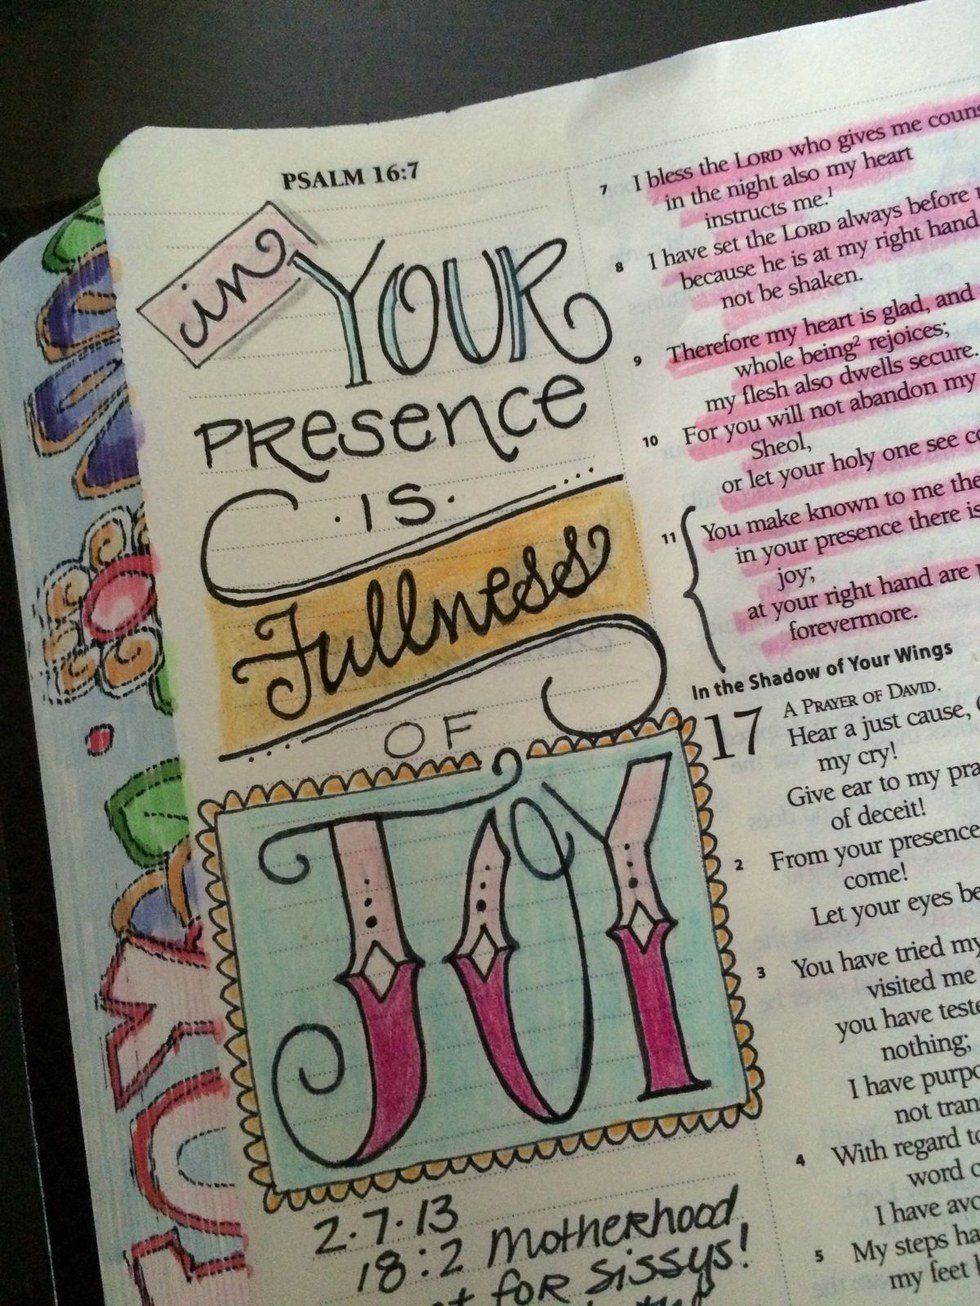 PSALM 16:7
in YOUR
PRESENCE
·IS·
Fullness
OF
JOY
2·7·13
18:2 Motherhood
FOR SISSYS!
7 I bless the LORD who gives me
in the night also my heart
instructs me.1
8 I have set the LORD always before
because he is at my right hand
not be shaken.
9 Therefore my heart is glad, and
whole being2 rejoices;
my flesh also dwells secure.
10 For you will not abandon my
Sheol,
or let your holy one see
11 You make known to me the
in your presence there is
joy;
at your right hand are
forevermore.
In the Shadow of Your Wings
17 A PRAYER OF DAVID.
Hear a just cause,
my cry!
Give ear to my
of deceit!
2 From your presence
come!
Let your eyes
3 You have tried
visited me
you have
nothing;
I have
not
4 With regard
word
I have
5 My steps
my feet